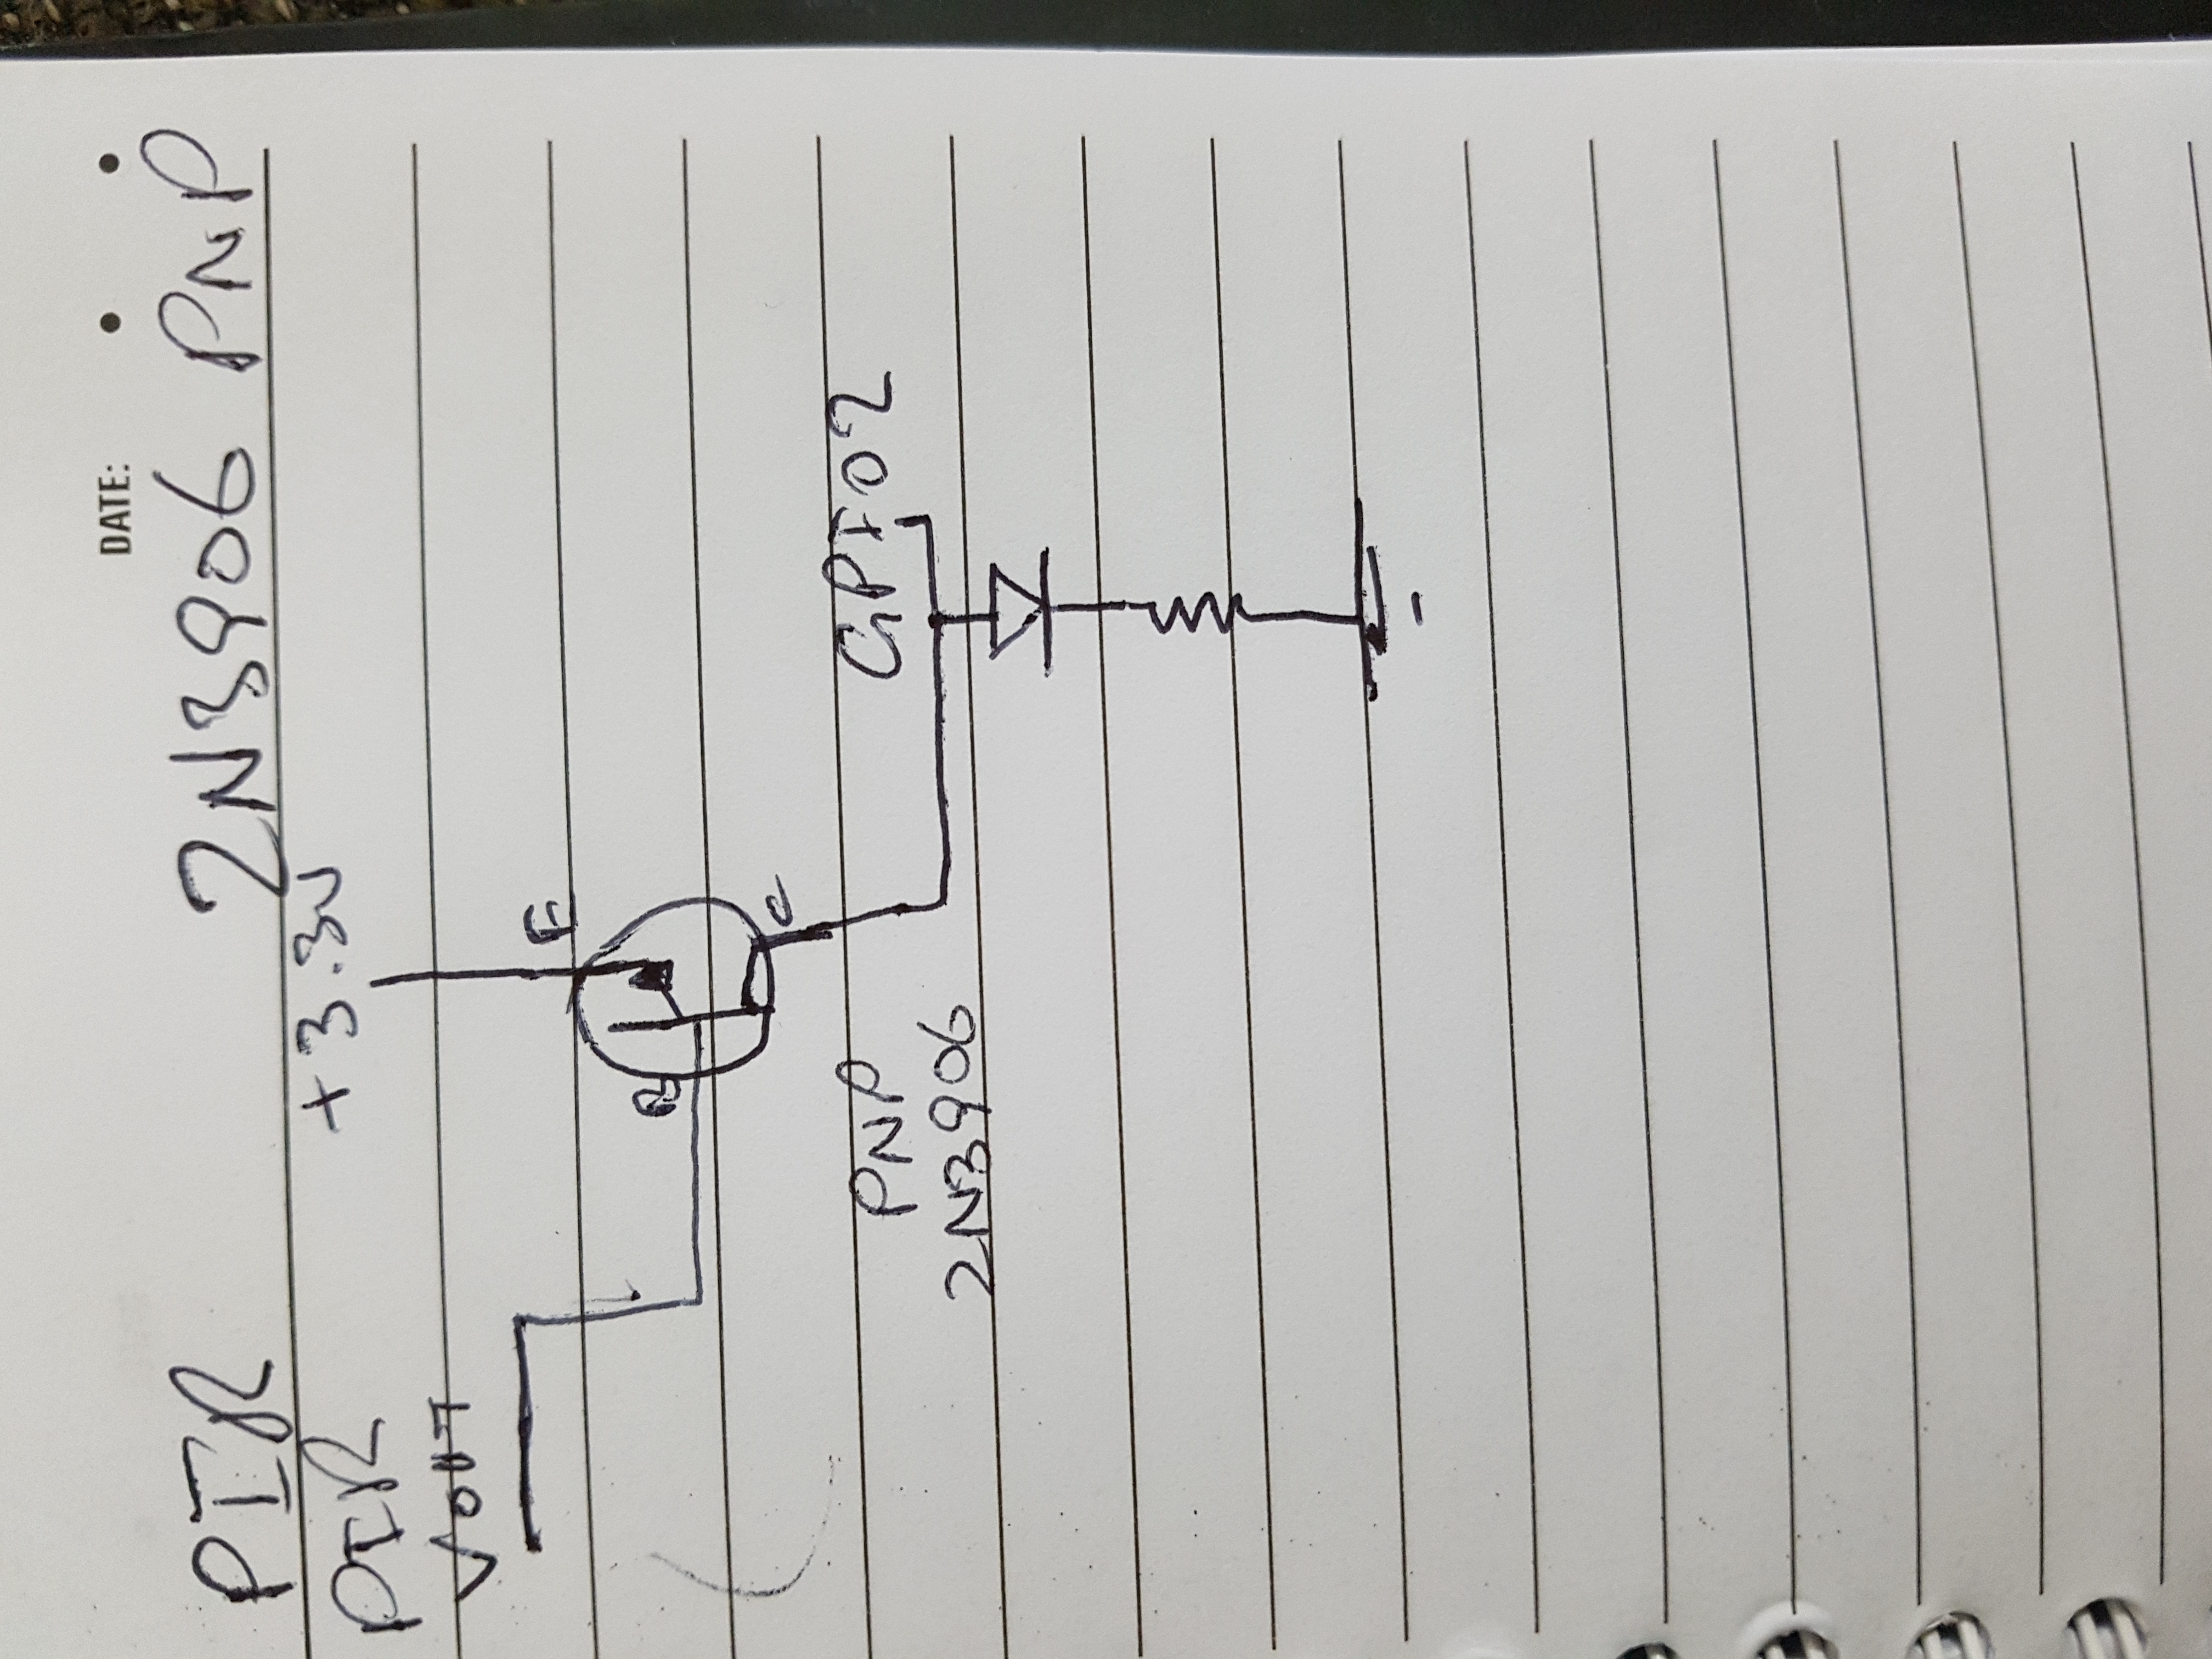 DATE:
PIR 2N3906 PNP
+3.3V
PIR
VOUT
E
B
C
PNP
2N3906
GPIO2